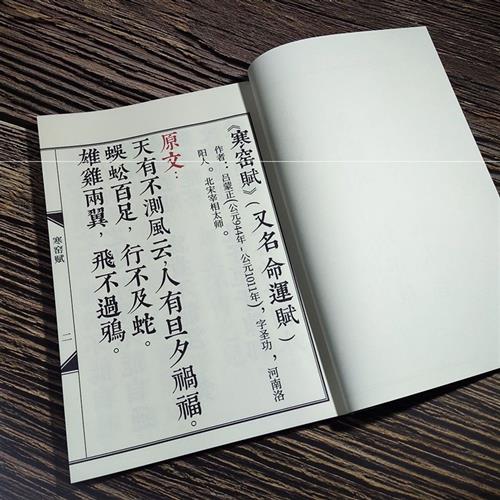 《寒窑賦》（又名命運賦）
作者：吕蒙正(公元944年-公元1011年)，字圣功，河南洛
阳人。北宋宰相太师。
原文：
天有不測風云，人有旦夕禍福。
蜈蚣百足，行不及蛇。
雄雞兩翼，飛不過鴉。
寒窑赋
二